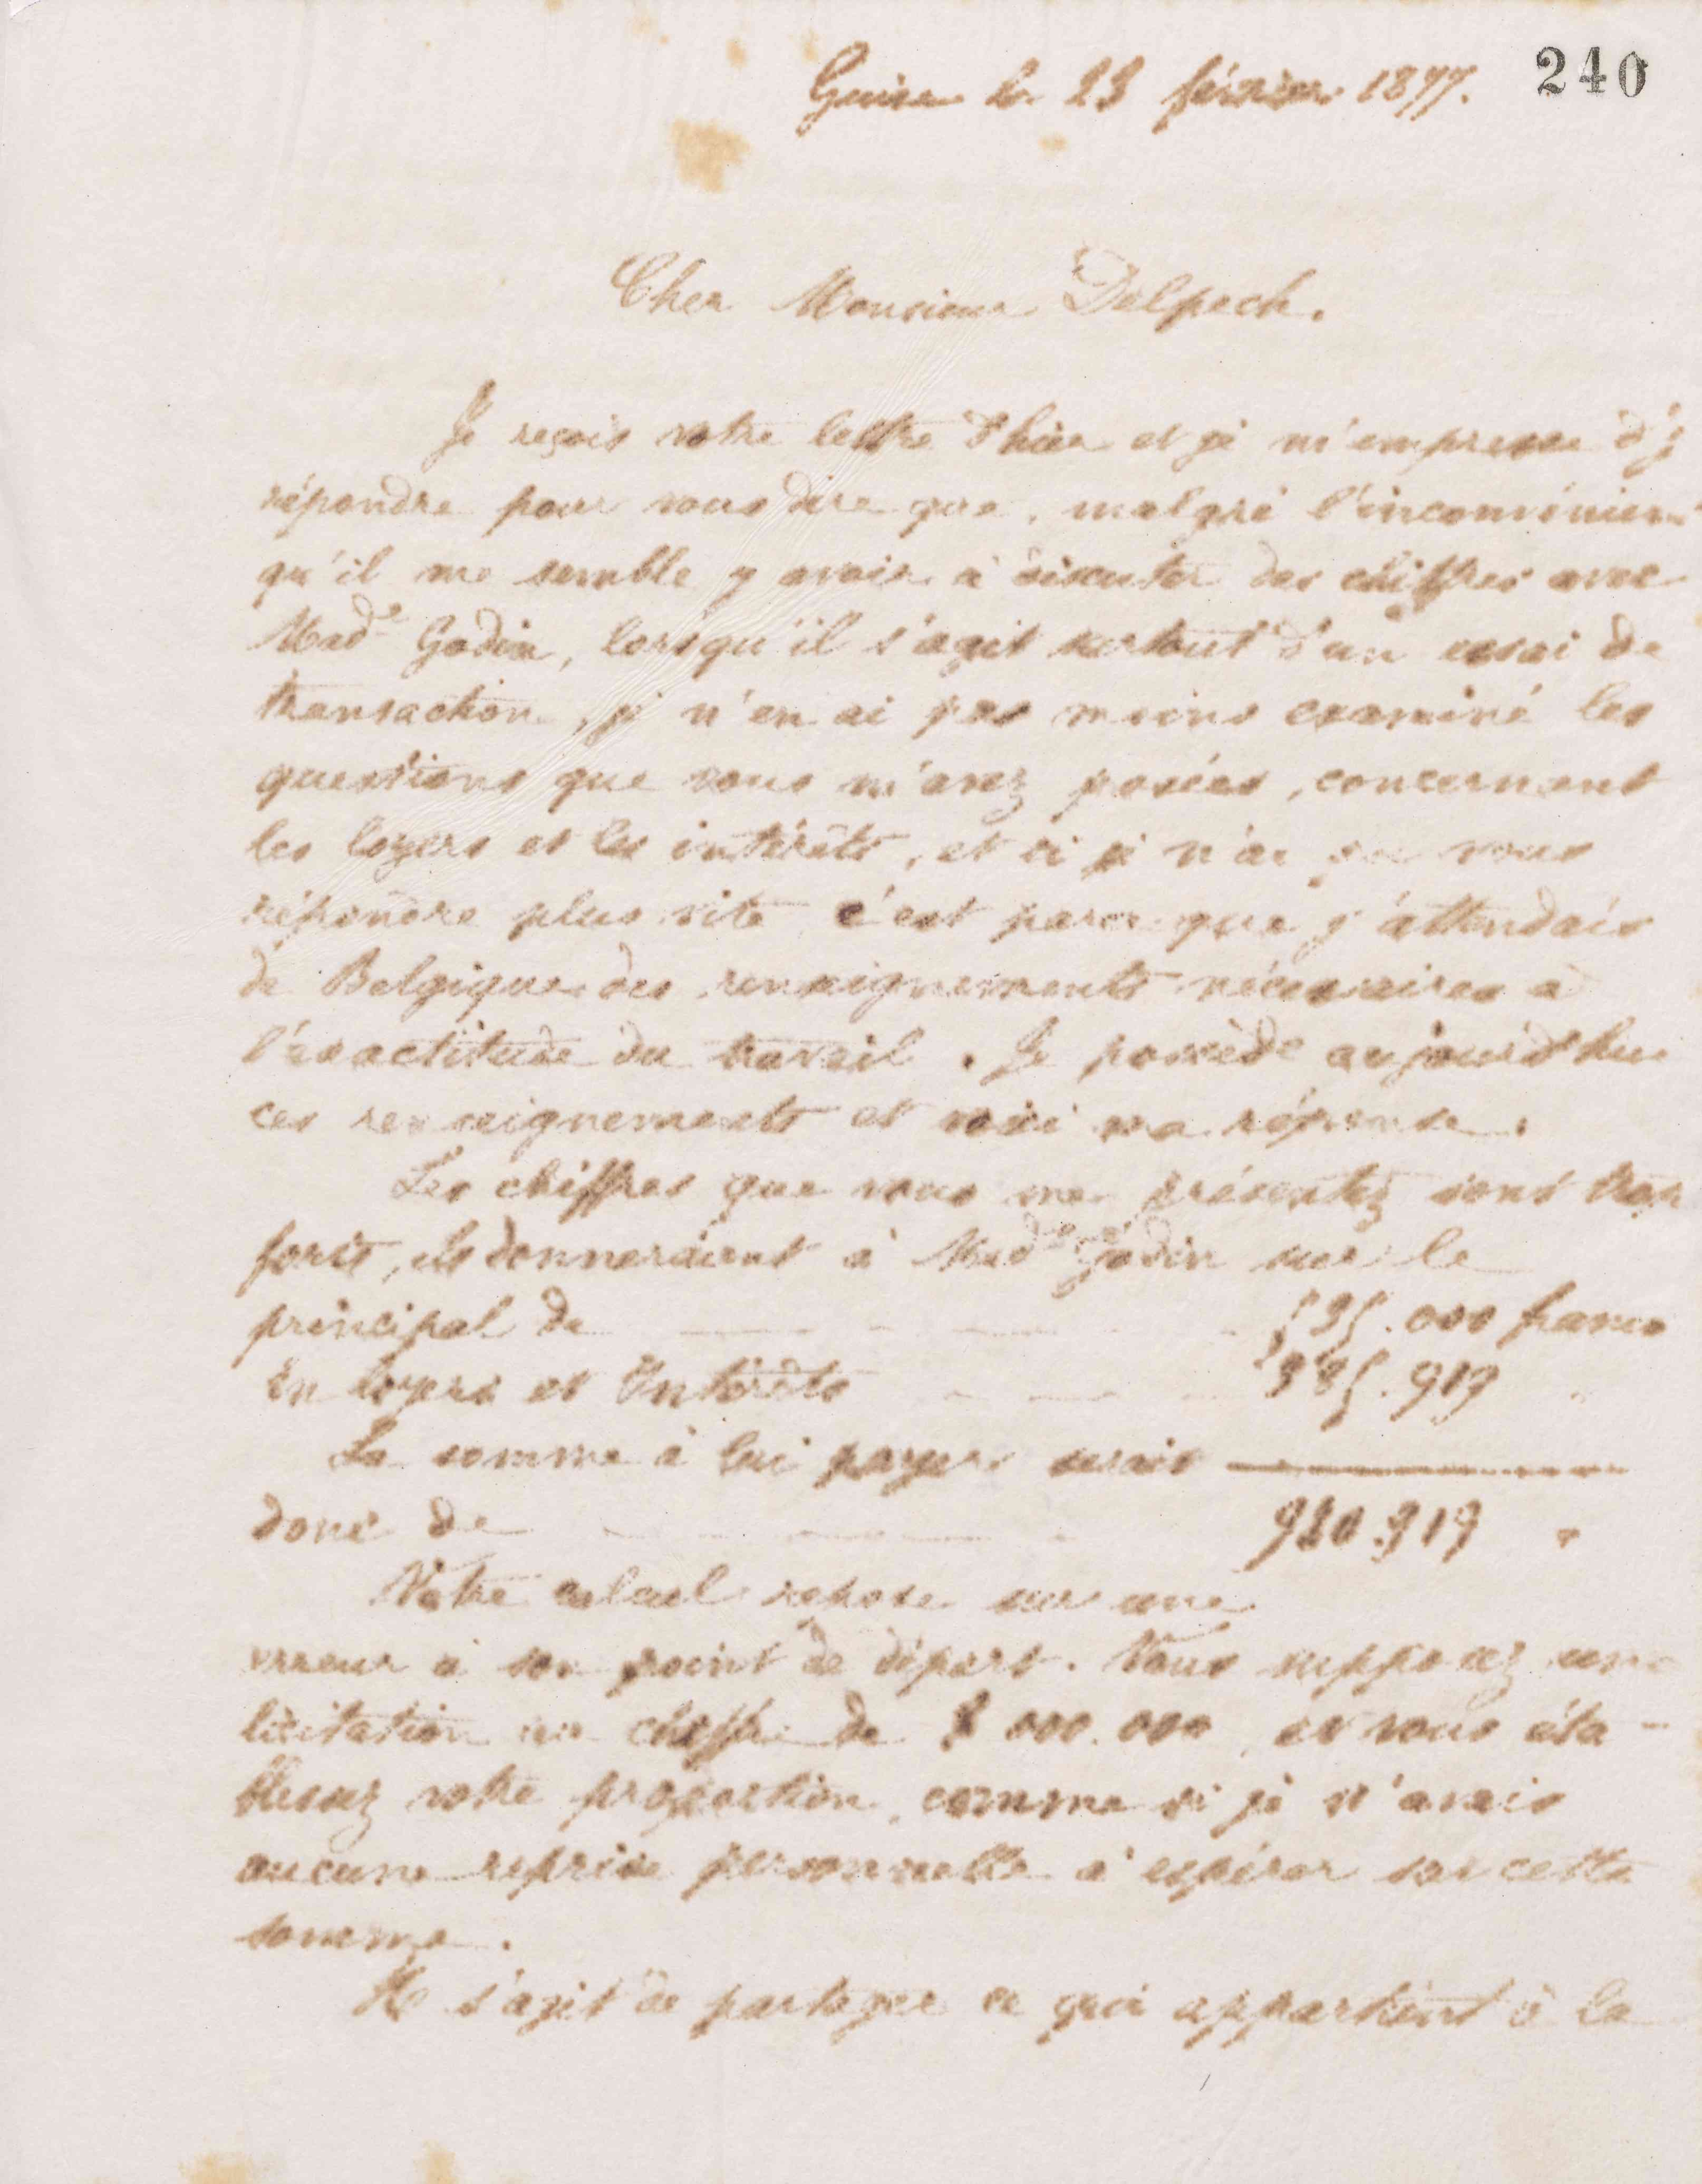 240
Guise le 23 février 1877.
Cher Monsieur Delpech.
Je reçois votre lettre d'hier et je m'empresse d'y
répondre pour vous dire que, malgré l'inconvénient
qu'il me semble y avoir à discuter des chiffres avec
Mad.e Godin, lorsqu'il s'agit surtout d'un essai de
transaction, je n'en ai pas moins examiné les
questions que vous m'avez posées, concernant
les loyers et les intérêts, et si je n'ai pu vous
répondre plus vite c'est parce que j'attendais
de Belgique des renseignements nécessaires à
l'exactitude du travail. Je possède aujourd'hui
ces renseignements et voici ma réponse.
Les chiffres que vous me présentez sont trop
forts, ils donneraient à Mad.e Godin sur le
principal de 535.000 francs
En loyers et Intérêts 385.919
La somme à lui payer serait
donc de 920.919 "
Votre calcul repose sur une
erreur à son point de départ. Vous supposez une
licitation au chiffre de 000.000, et vous éta-
blissez votre proportion, comme si je n'avais
aucune reprise personnelle à espérer sur cette
somme.
Il s'agit de partager ce qui appartient à la